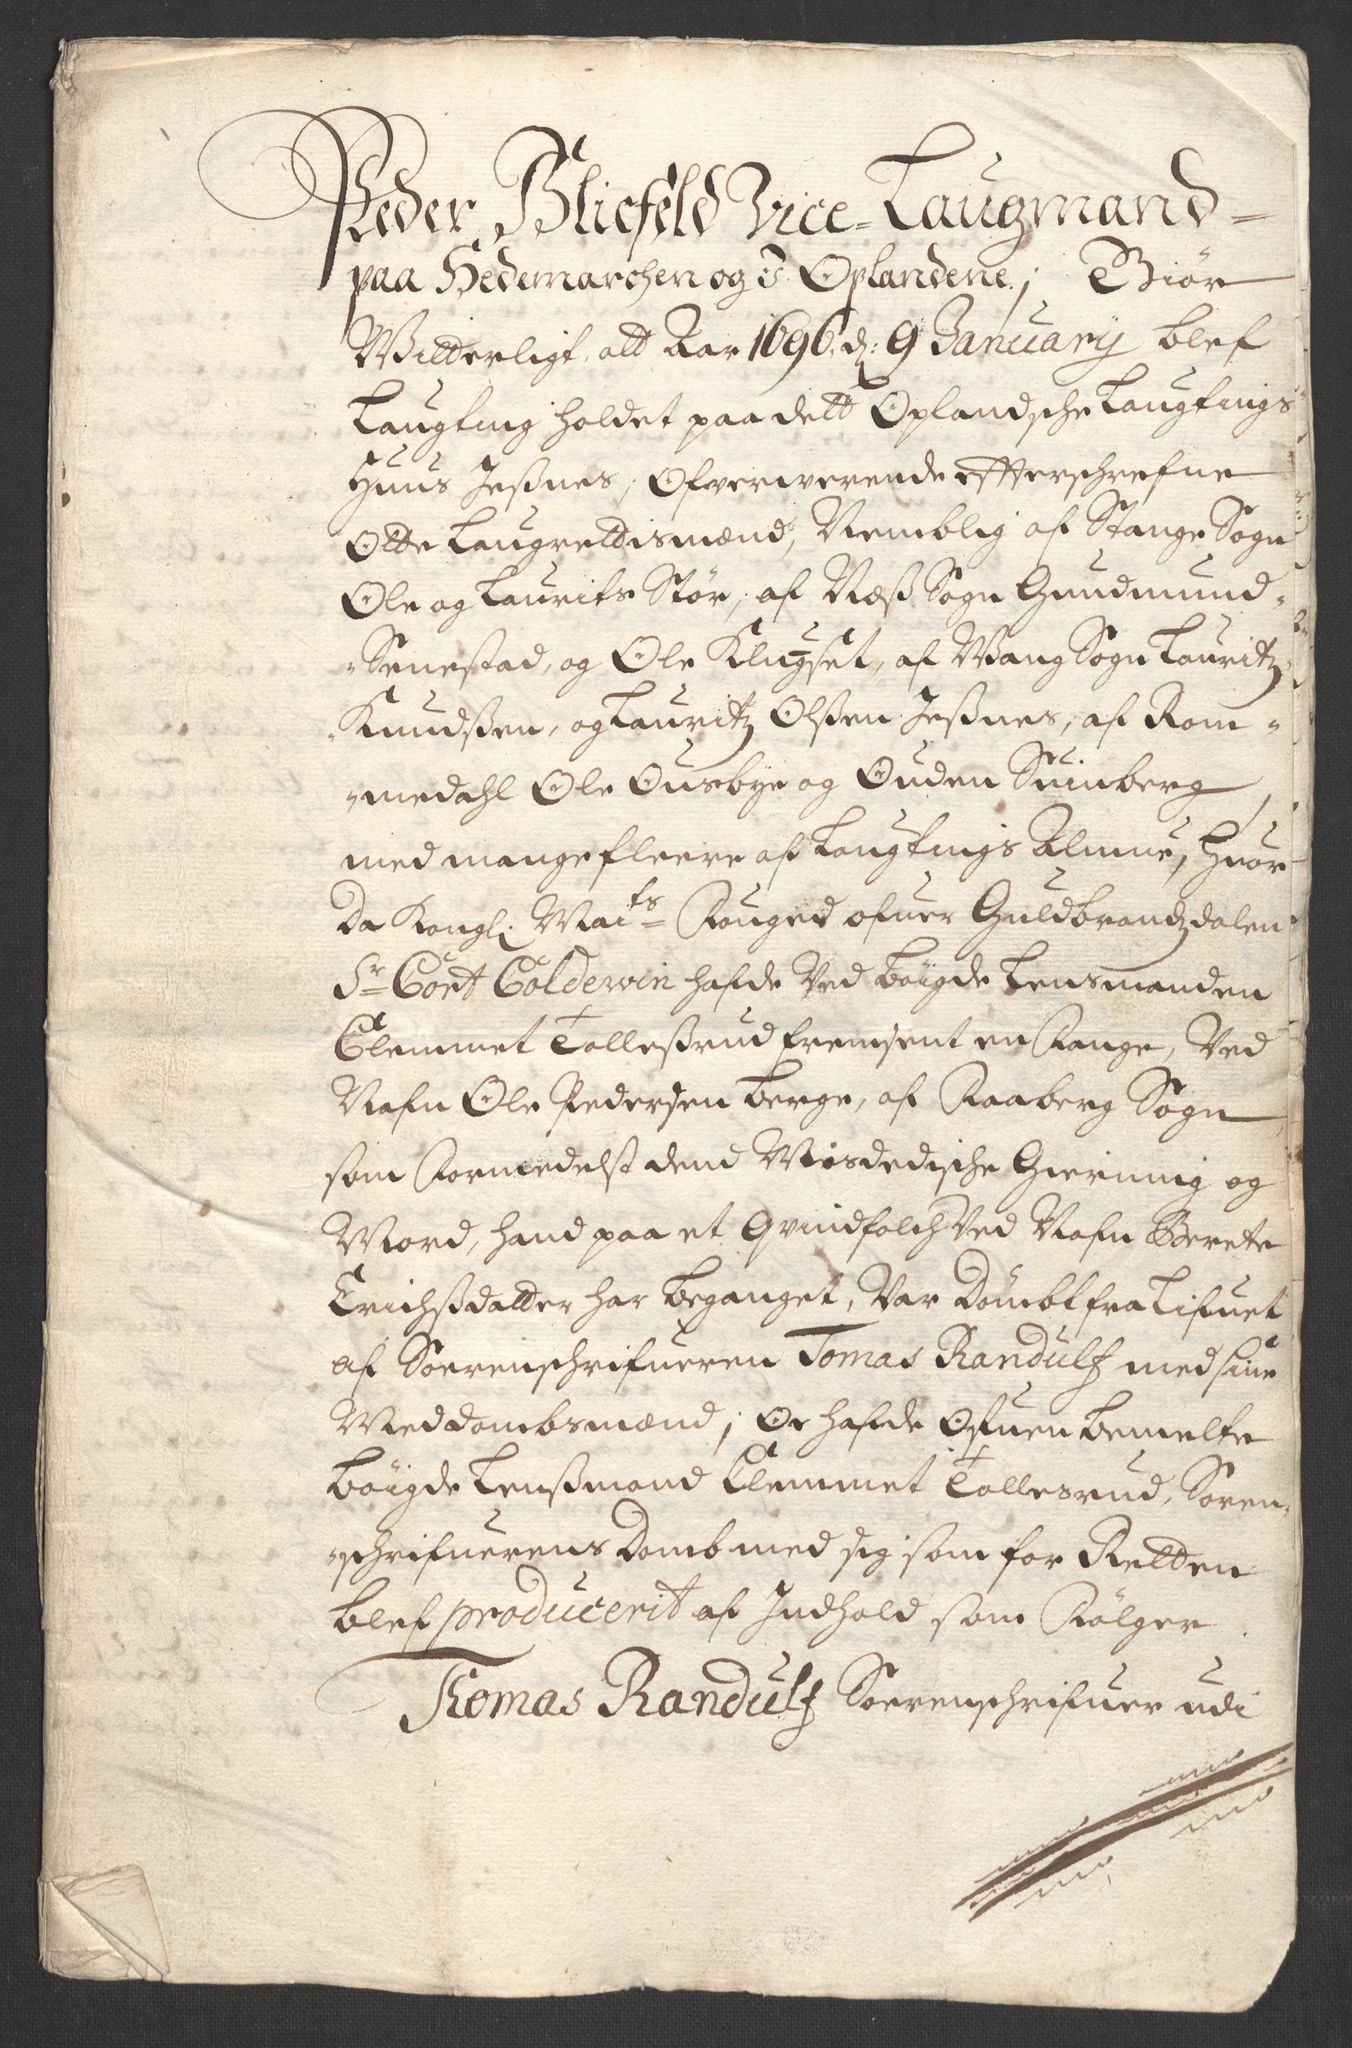 Peder Bliefeld Vice-Laugmand-
paa Hedemarchen og i Oplandene; Giør
Witterligt, att Aar 1696, d: 9 January blef
Laugting holdet paa dett Oplandsche Laugtings
Huus Jeßnes, Ofververende effterschrefne
Otte Laugrettismænd, Nemblig af Stange Sogn
Ole og Laurits Stør, af Næß Sogn Gundmund-
-Senestad, og Ole Klugset, af Wang Sogn Lauritz
Knudßen, og Lauritz Olßen Jeßnes, af Rom-
-medahl Ole Ousbye og Ouden Suinberg
med mange fleere af Laugtings Almue, Huor
Da Kongl: Maits Fouged ofuer Guldbrandzdalen
Sr Cort Coldewin hafde Ved bøigde Lensmanden
Clemmet Tolleßrud fremsent en Fange, Ved
Nafn Ole Pedersen berge, af Faaberg Sogn
som formedelst dend Misdedische Gierning og
Mord, hand paa et Qvindfolch Ved Nafn Berete
Erichsdatter har beganget, Var dømbt fra Lifuet
af Soerenschrifueren Tomas Randulf med sine
Meddombsmænd; Oc hafde Ofuenbemelte
bøigde Lenßmand Clemmet Tollesrud, Soren-
-schrifuerens Domb med sig som for Retten
blef producerit af Indhold som følger
Thomas Randulf Soerenschrifuer udi